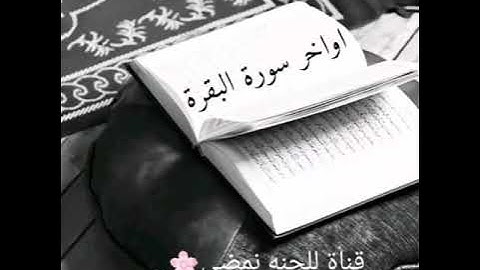 اواخر سورة البقرة
قناة للجنه نمضي🌸